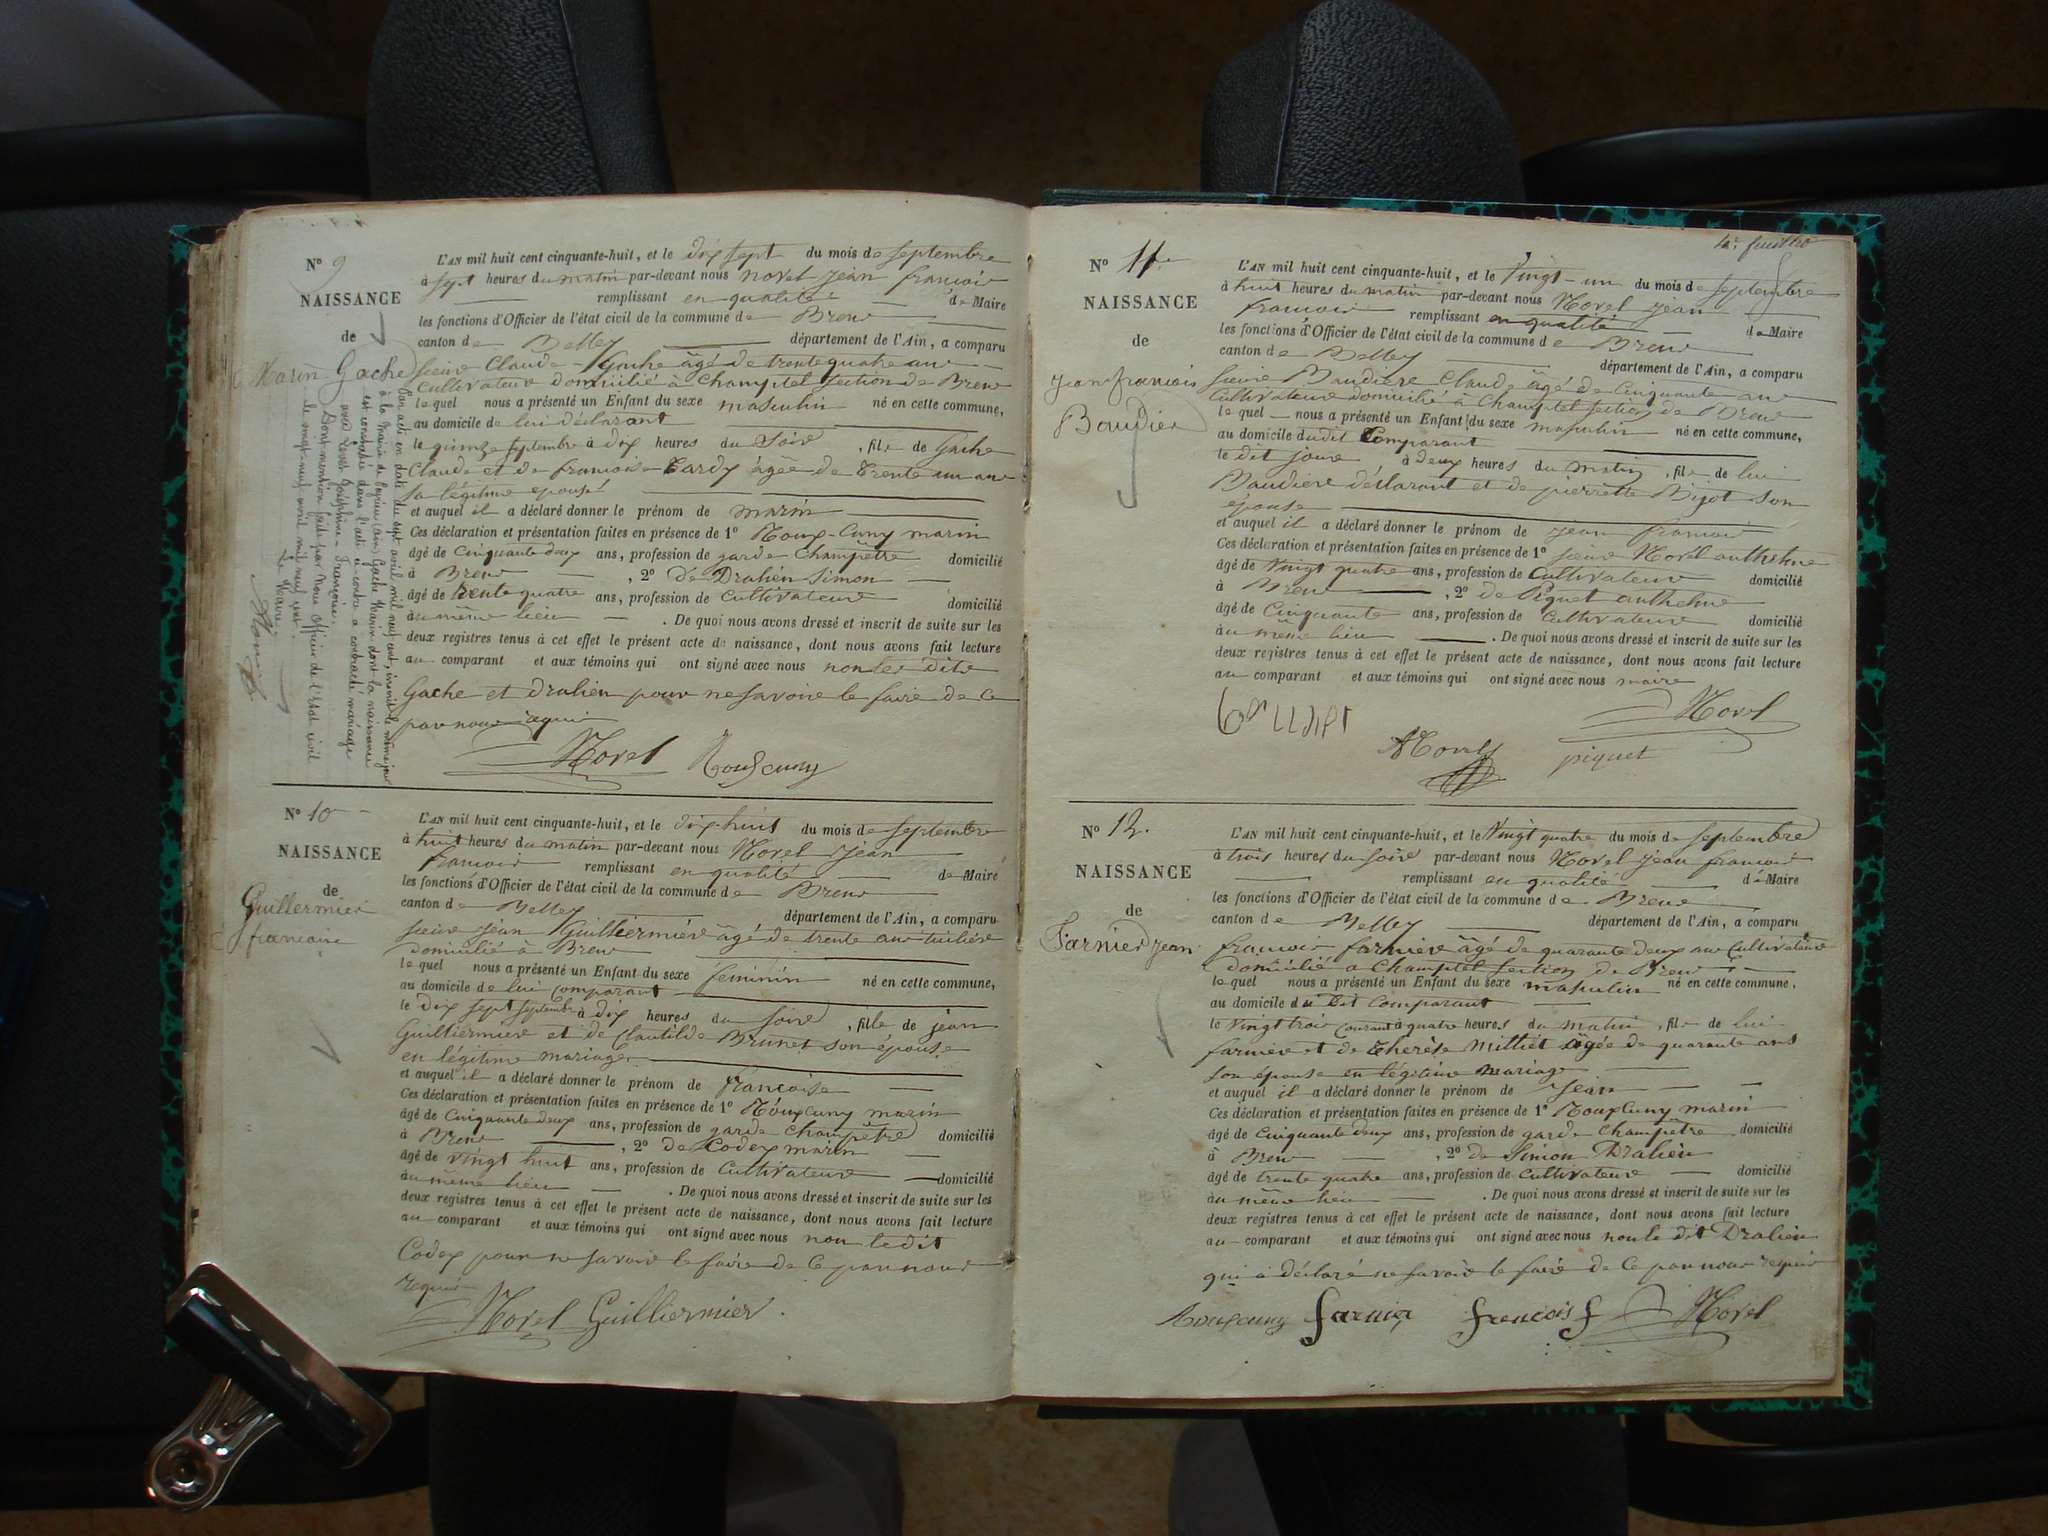 N° 9
NAISSANCE
de
Marin Gache
L'AN mil huit cent cinquante-huit, et le dix sept du mois de septembre
à sept heures du matin par-devant nous Morel jean francois
remplissant en qualité de Maire
les fonctions d'Officier de l'état civil de la commune de Brens
canton de Belley département de l'Ain, a comparu
sieur Claude Gache âgé de trente quatre ans
Cultivateur domicilié à Champtel section de Brens
le quel nous a présenté un Enfant du sexe masculin né en cette commune,
au domicile de lui déclarant
le quinze septembre à dix heures du Soire, fils de Gache
Claude et de francoise Tardy âgée de Trente un ans
sa légitime epouse
et auquel il a déclaré donner le prénom de marin
Ces déclaration et présentation faites en présence de 1° Roux-Cuny marin
âgé de Cinquante deux ans, profession de garde Champêtre domicilié
à Brens, 2° de Dralien Simon
âgé de Trente quatre ans, profession de Cultivateur domicilié
au même lieu. De quoi nous avons dressé et inscrit de suite sur les
deux registres tenus à cet effet le présent acte de naissance, dont nous avons fait lecture
au comparant et aux témoins qui ont signé avec nous non les dits
Gache et Dralien pour ne savoir le faire de ce
par nous requis
Morel Rouxcuny
Par acte en date du sept avril mil neuf cent, inscrit le même jour
à la Mairie de (Ain) Gache Marin dont la naissance
est constatée dans l'acte ci-contre a contracté mariage
avec Joséphine - Francoise.
Dont mention faite par Nous Officier de l'Etat civil
le vingt-neuf avril mil neuf cent.
Le Maire,
N° 10
NAISSANCE
de
Guillermier
francoise
L'AN mil huit cent cinquante-huit, et le dix-huit du mois de septembre
à huit heures du matin par-devant nous Morel jean
francois remplissant en qualité de Maire
les fonctions d'Officier de l'état civil de la commune de Brens
canton de Belley département de l'Ain, a comparu
sieur jean Guilliermier âgé de trente ans tuilier
domicilié à Brens
le quel nous a présenté un Enfant du sexe feminin né en cette commune,
au domicile de lui comparant
le dix sept septembre à dix heures du soire, fille de jean
Guilliermier et de Clautilde Brunet son épouse
en légitime mariage
et auquel il a déclaré donner le prénom de francoise
Ces déclaration et présentation faites en présence de 1° Rouxcuny marin
âgé de Cinquante deux ans, profession de garde champêtre domicilié
à Brens, 2° de Codex marin
âgé de vingt huit ans, profession de Cultivateur domicilié
au même lieu. De quoi nous avons dressé et inscrit de suite sur les
deux registres tenus à cet effet le présent acte de naissance, dont nous avons fait lecture
au comparant et aux témoins qui ont signé avec nous non le dit
Codex pour ne savoir le faire de ce par nous
requis
Morel Guilliermier
N° 11
NAISSANCE
de
jean francois
Baudier
L'AN mil huit cent cinquante-huit, et le Vingt-un du mois de septembre
à huit heures du matin par-devant nous Morel jean
francois remplissant en qualité de Maire
les fonctions d'Officier de l'état civil de la commune de Brens
canton de Belley département de l'Ain, a comparu
sieur Baudiere Claude âgé de Cinquante ans
Cultivateur domicilié à Champtel section de Brens
le quel nous a présenté un Enfant du sexe masculin né en cette commune,
au domicile dudit Comparant
le dit jour à deux heures du matin, fils de lui
Baudiere déclarant et de pierrette Bijot son
épouse
et auquel il a déclaré donner le prénom de jean francois
Ces déclaration et présentation faites en présence de 1° sieur Morel anthelme
âgé de Vingt quatre ans, profession de Cultivateur domicilié
à Brens, 2° de Piquet anthelme
âgé de Cinquante ans, profession de Cultivateur domicilié
au même lieu. De quoi nous avons dressé et inscrit de suite sur les
deux registres tenus à cet effet le présent acte de naissance, dont nous avons fait lecture
au comparant et aux témoins qui ont signé avec nous maire
Morel
piquet
N° 12.
NAISSANCE
de
Farnier jean
L'AN mil huit cent cinquante-huit, et le Vingt quatre du mois de septembre
à trois heures du soire par-devant nous Morel jean francois
remplissant en qualité de Maire
les fonctions d'Officier de l'état civil de la commune de Brens
canton de Belley département de l'Ain, a comparu
francois farniere âgé de quarante deux ans Cultivateur
domicilié a Champtel section de Brens
le quel nous a présenté un Enfant du sexe masculin né en cette commune,
au domicile du dit Comparant
le Vingt trois courant à quatre heures du matin, fils de lui
farniere et de Therèse Milliet agée de quarante ans
son épouse en légitime mariage
et auquel il a déclaré donner le prénom de jean
Ces déclaration et présentation faites en présence de 1° Rouxcuny marin
âgé de Cinquante deux ans, profession de garde Champêtre domicilié
à Brens, 2° de Simon Dralien
âgé de trente quatre ans, profession de Cultivateur domicilié
au même lieu. De quoi nous avons dressé et inscrit de suite sur les
deux registres tenus à cet effet le présent acte de naissance, dont nous avons fait lecture
au comparant et aux témoins qui ont signé avec nous non le dit Dralien
qui a déclaré ne savoir le faire de ce par nous requis
Rouxcuny farnier francois f Morel